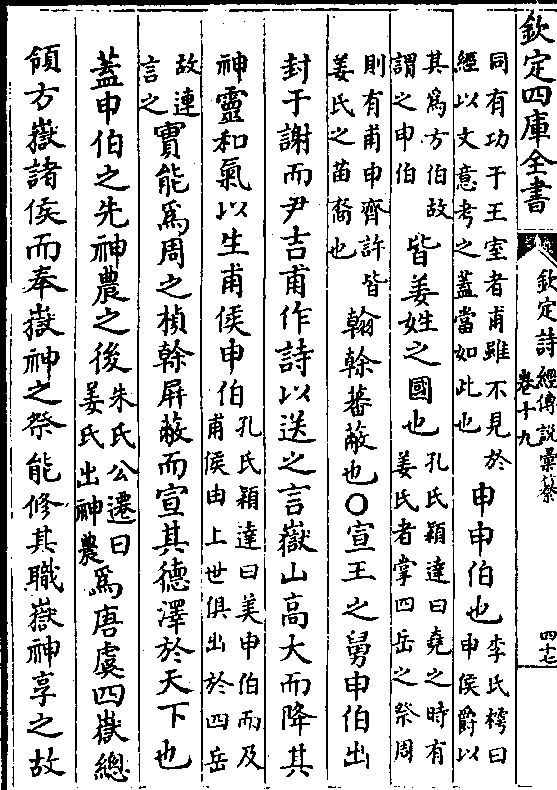 欽定四庫全書
欽定詩經傳說彙纂
卷十九
四十七
同有功于王室者甫雖不見於
經以文意考之蓋當如此也
申申伯也
李氏樗曰
申侯爵以
其為方伯故
謂之申伯
皆姜姓之國也
孔氏穎達曰堯之時有
姜氏者掌四岳之祭周
則有甫申齊許皆
姜氏之苗裔也
翰榦蕃蔽也○宣王之舅申伯出
封于謝而尹吉甫作詩以送之言嶽山高大而降其
神靈和氣以生甫侯申伯
孔氏穎達曰美申伯而及
甫侯由上世俱出於四岳
故連
言之
實能為周之楨榦屏蔽而宣其德澤於天下也
蓋申伯之先神農之後
朱氏公遷曰
姜氏出神農
為唐虞四嶽總
領方嶽諸侯而奉嶽神之祭能修其職嶽神享之故